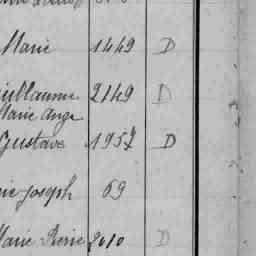 Marie 1449 D
Guillaume 2149 D
Marie Ange
Gustave 1957 D
Joseph 69
Marie Pierre 2010 D